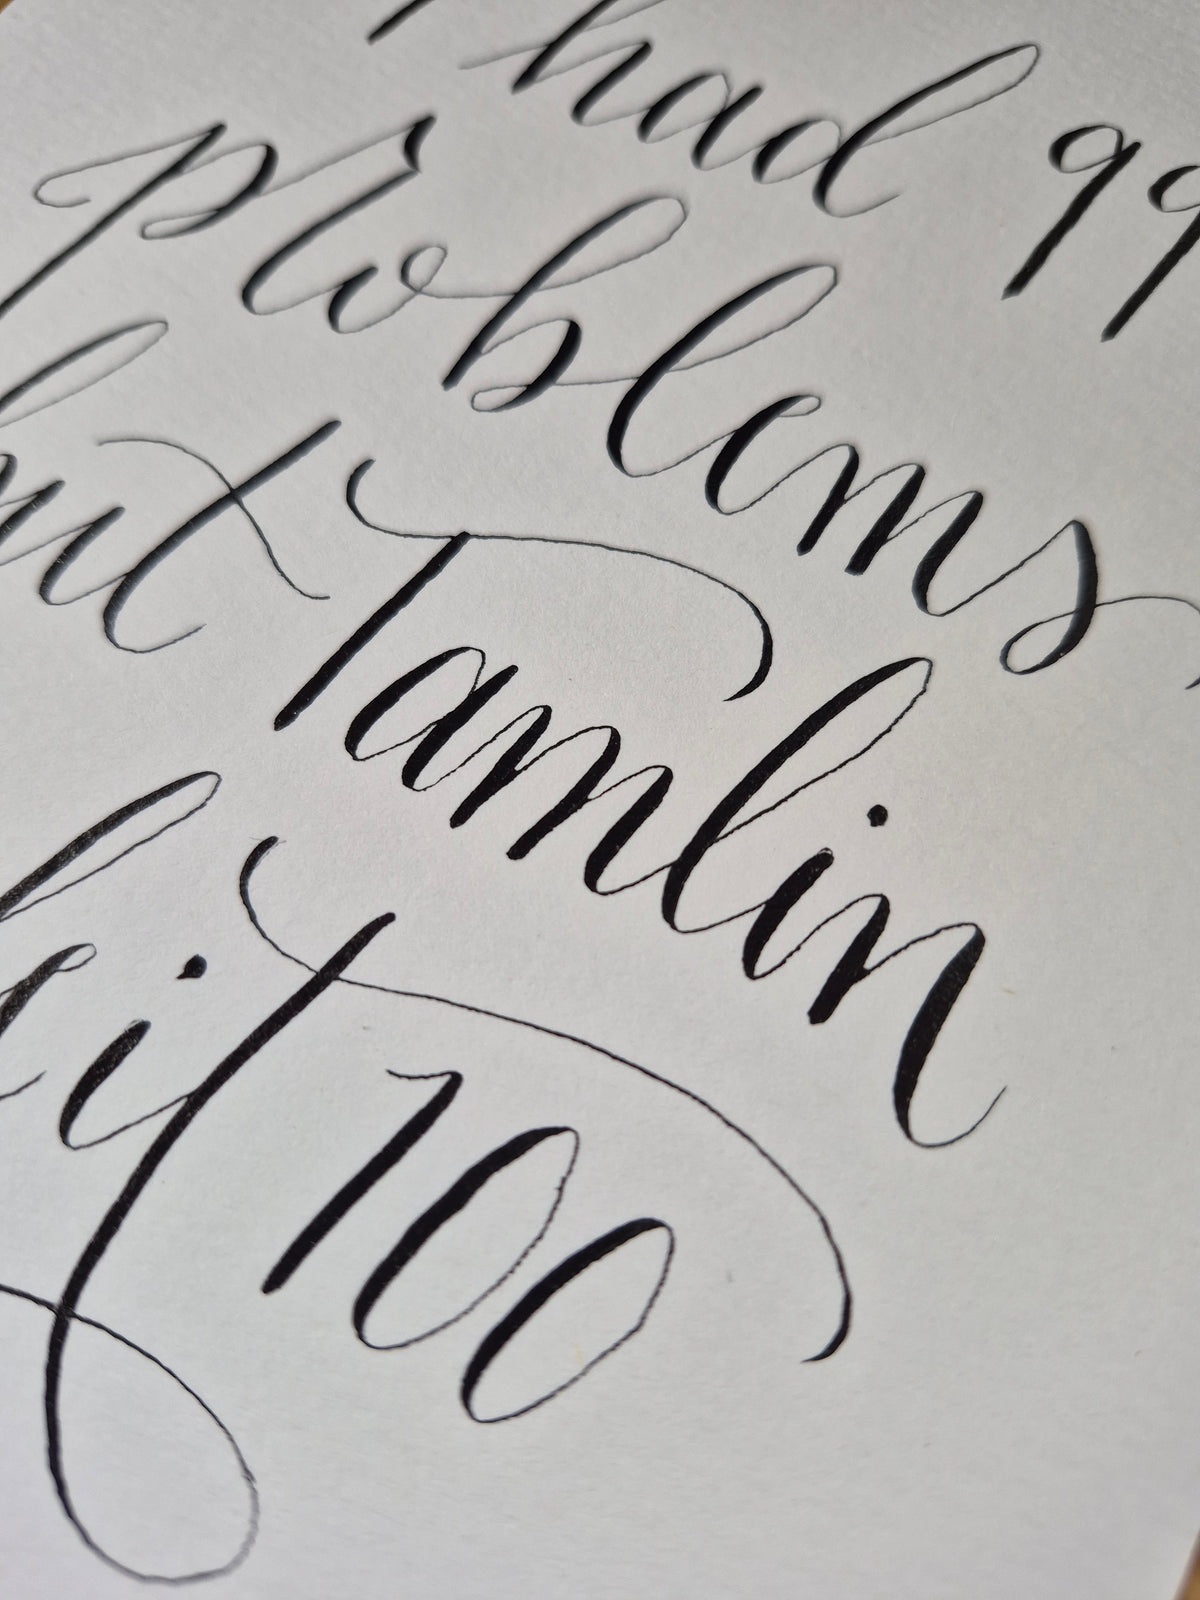 had 99
problems
but Tamlin
it 100